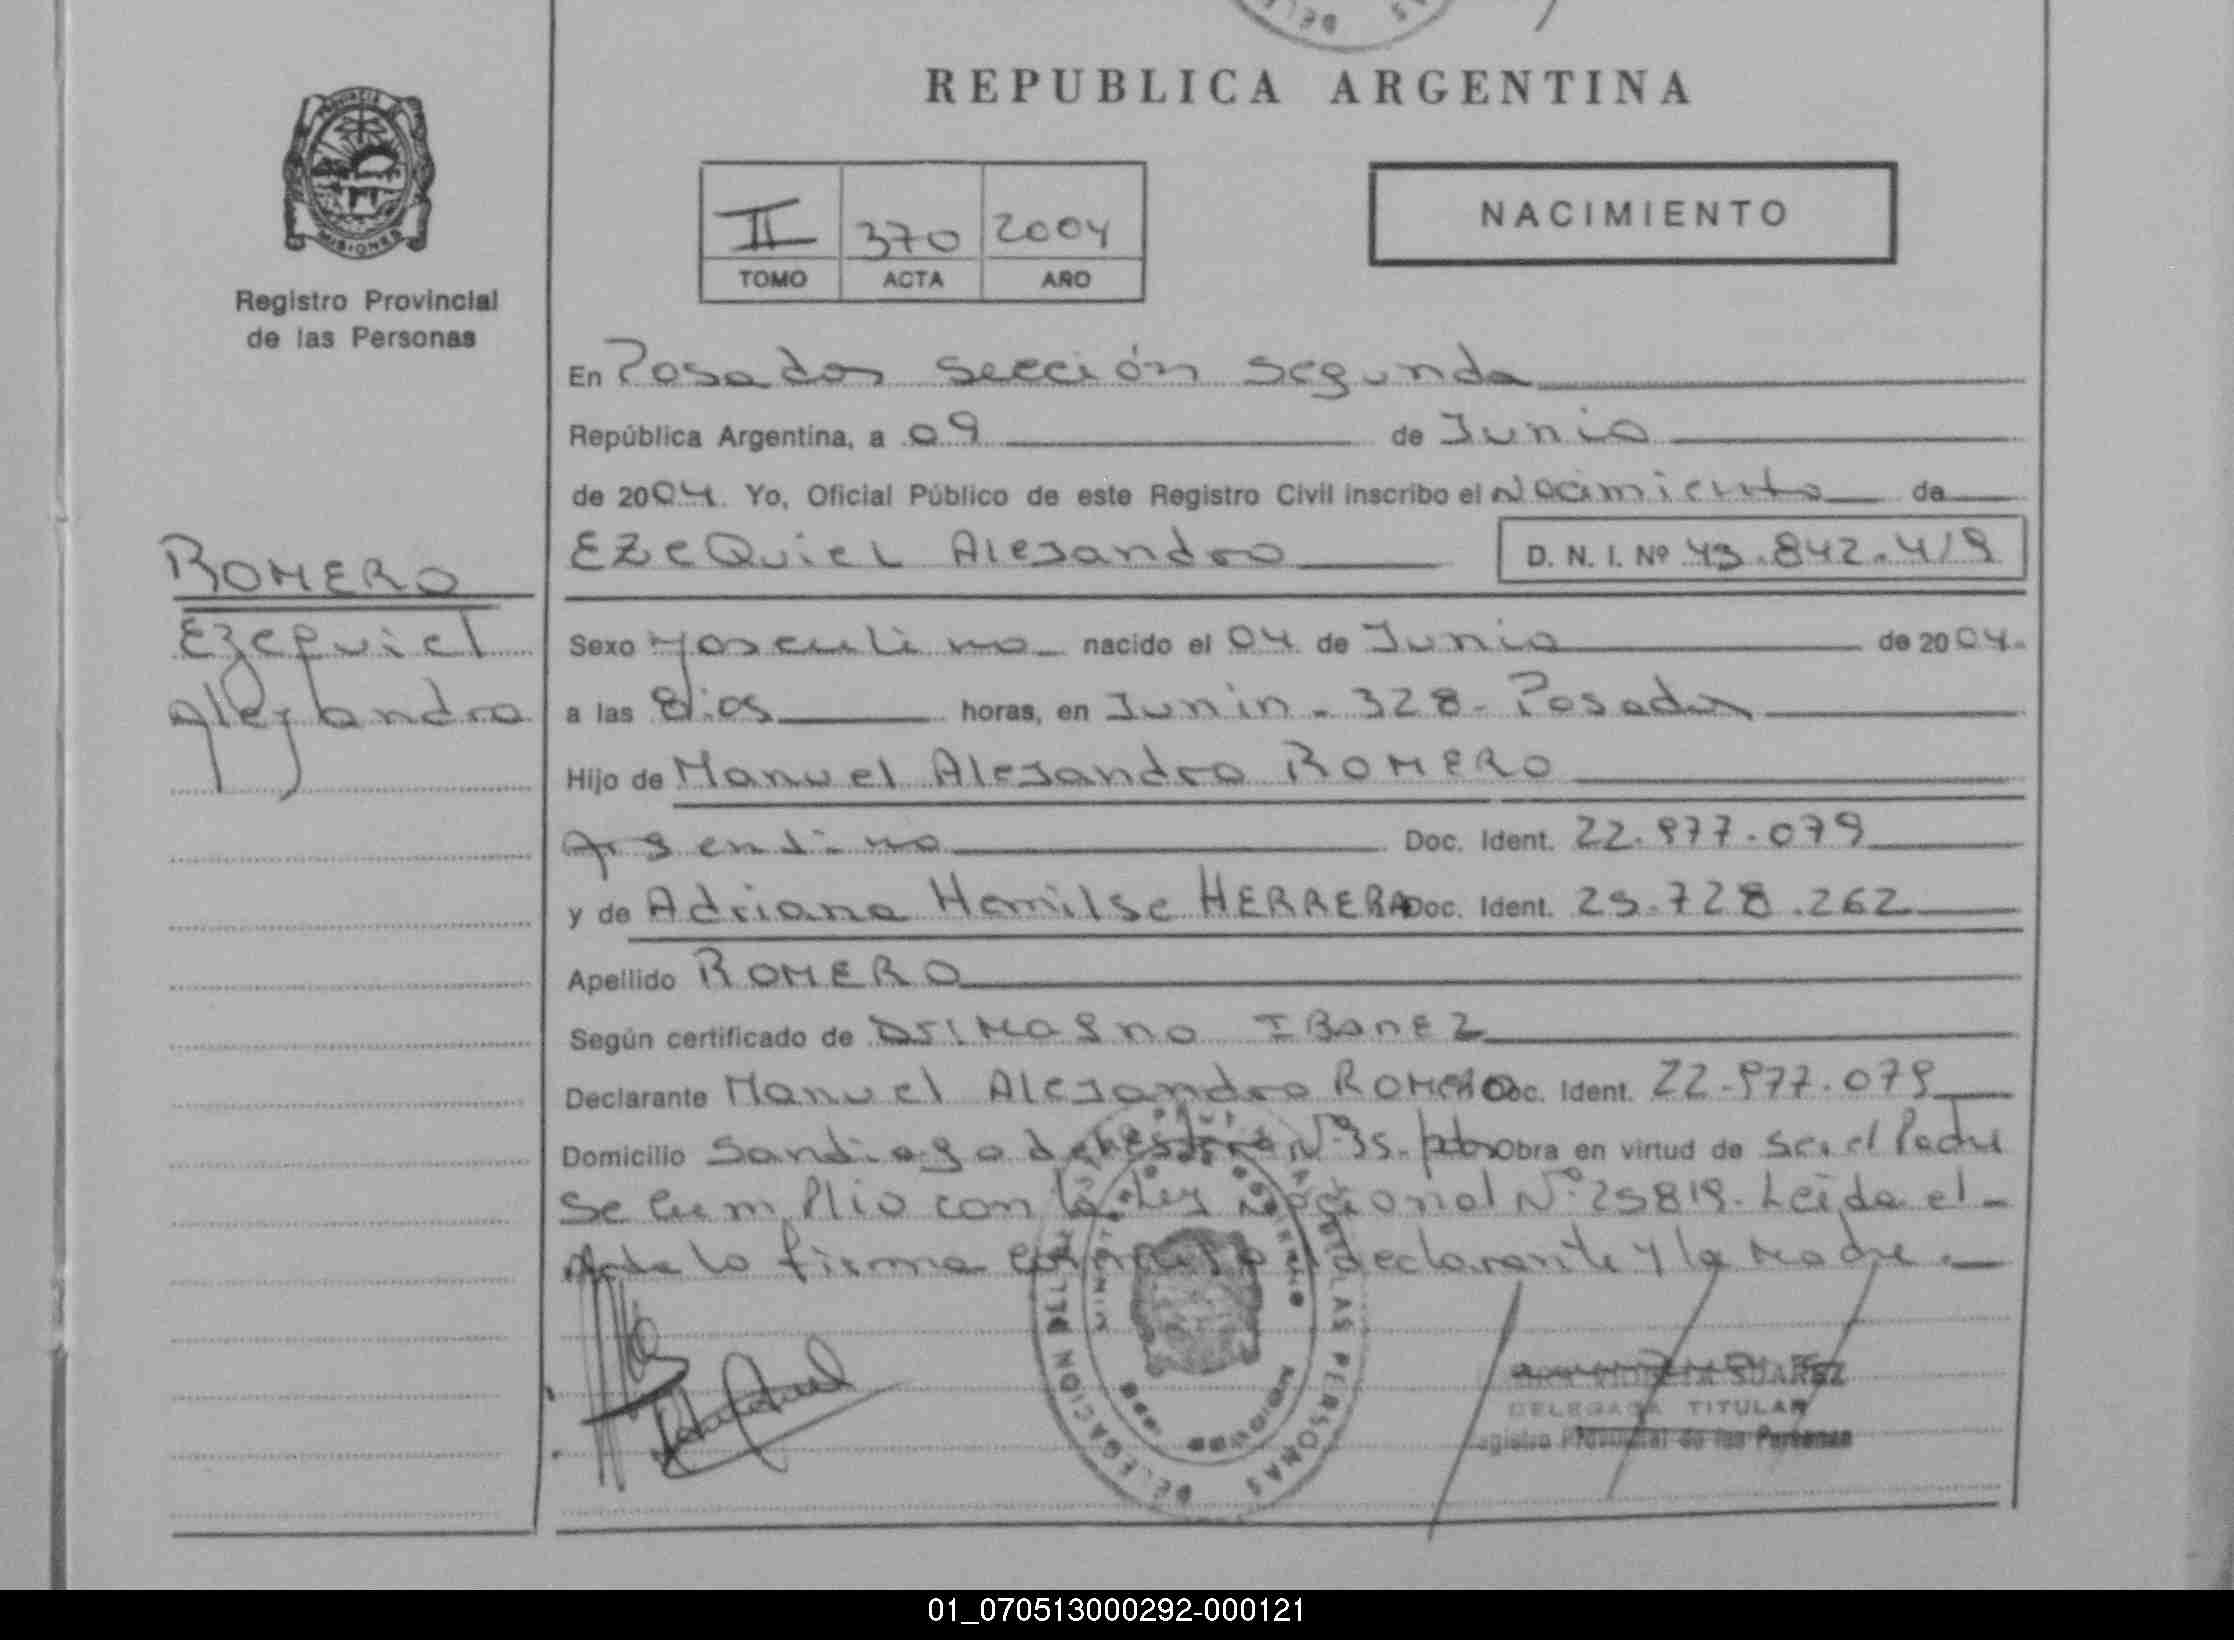 REPUBLICA ARGENTINA
PROVINCIA DE
MISIONES
Registro Provincial
de las Personas
II 370 2004
TOMO ACTA AÑO
NACIMIENTO
En Posadas sección segunda
República Argentina, a 09 de Junio
de 2004. Yo, Oficial Público de este Registro Civil inscribo el Nacimiento de
EZEQUIEL Alejandro D. N. I. Nº 43.842.419
ROMERO
Ezequiel
Alejandro
Sexo Masculino nacido el 04 de Junio de 2004.
a las 8:05 horas, en Junin - 328 - Posadas
Hijo de Manuel Alejandro ROMERO
Argentino Doc. Ident. 22.977.079
y de Adriana Hemilse HERRERA Doc. Ident. 25.728.262
Apellido ROMERO
Según certificado de IBAÑEZ
Declarante Manuel Alejandro ROMERO Doc. Ident. 22.977.079
Domicilio Santiago del Estero Nº 35. Obra en virtud de ser el Padre
se cumplio con la Ley Nacional Nº 25819. Leida el
Acta la firma el declarante y la Madre.
DELEGACION
DE LAS PERSONAS
MISIONES
SUAREZ
DELEGADA TITULAR
Registro Provincial de las Personas
01_070513000292-000121